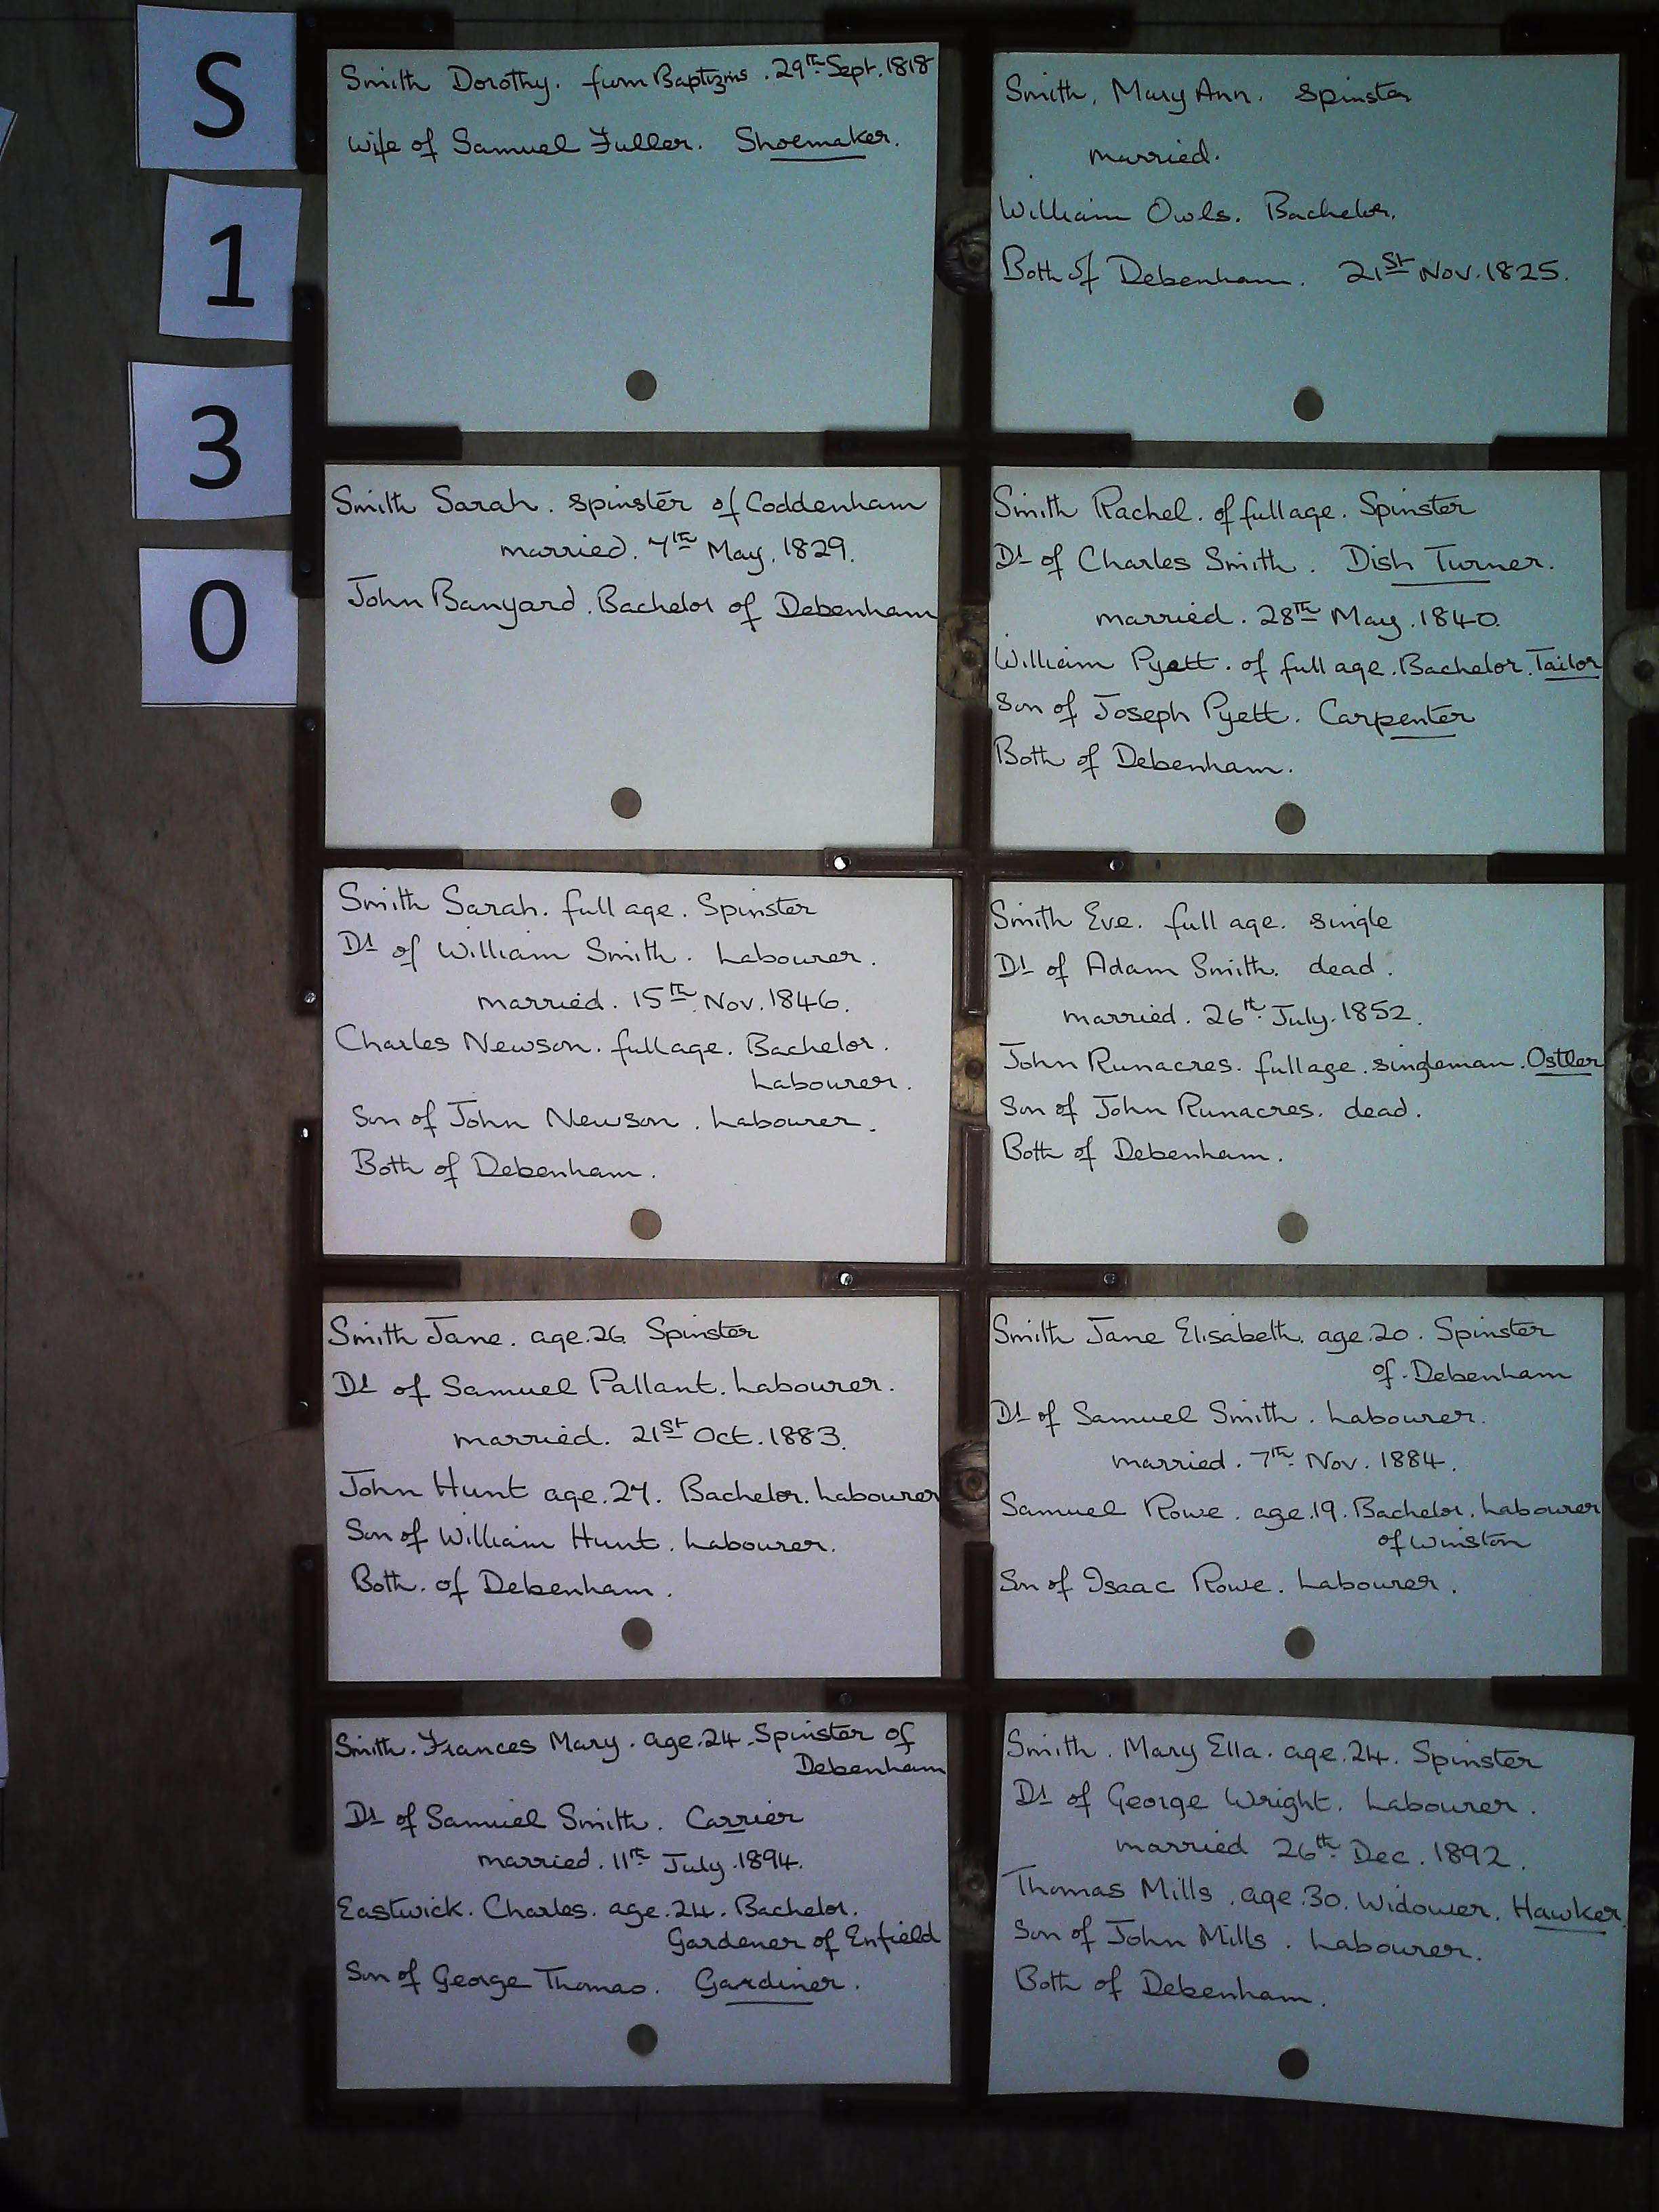 S
1
3
0
Smith Dorothy. from Baptizms. 29th Sept. 1818
Wife of Samuel Fuller. Shoemaker.
Smith, Mary Ann. Spinster
married.
William Owls. Bachelor.
Both of Debenham. 21st Nov. 1825.
Smith Sarah. Spinster of Coddenham
married. 7th May. 1829.
John Banyard. Bachelor of Debenham
Smith Rachel. of full age. Spinster
Dt of Charles Smith. Dish Turner.
married. 28th May. 1840.
William Pyett. of full age. Bachelor. Tailor
Son of Joseph Pyett. Carpenter
Both of Debenham.
Smith Sarah. full age. Spinster
Dt of William Smith. Labourer.
married. 15th Nov. 1846.
Charles Newson. full age. Bachelor.
Labourer.
Son of John Newson. Labourer.
Both of Debenham.
Smith Eve. full age. single
Dt of Adam Smith. dead.
married. 26th July. 1852.
John Runacres. full age. singleman. Ostler
Son of John Runacres. dead.
Both of Debenham.
Smith Jane. age.26 Spinster
Dt of Samuel Pallant. Labourer.
married. 21st Oct. 1883.
John Hunt age.27. Bachelor. Labourer
Son of William Hunt. Labourer.
Both. of Debenham.
Smith Jane Elisabeth. age.20. Spinster
of. Debenham
Dt of Samuel Smith. Labourer.
married. 7th Nov. 1884.
Samuel Rowe. age.19. Bachelor. Labourer
of Winston
Son of Isaac Rowe. Labourer.
Smith. Frances Mary. age.24. Spinster of
Debenham
Dt of Samuel Smith. Carrier
married. 11th July. 1894.
Eastwick. Charles. age.24. Bachelor.
Gardener of Enfield
Son of George Thomas. Gardiner.
Smith. Mary Ella. age.24. Spinster
Dt of George Wright. Labourer.
married 26th Dec. 1892.
Thomas Mills. age.30. Widower. Hawker.
Son of John Mills. Labourer.
Both of Debenham.